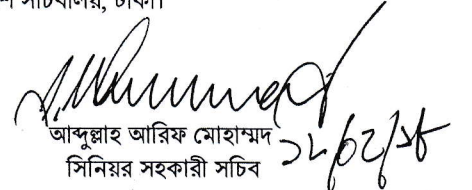 সচিবালয়, ঢাকা।
আব্দুল্লাহ আরিফ মোহাম্মদ
সিনিয়র সহকারী সচিব